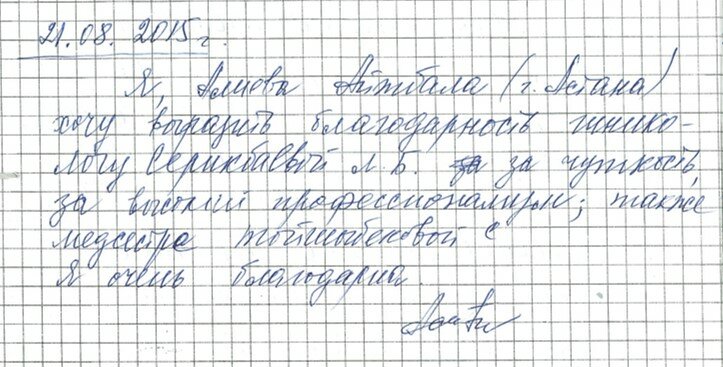 21.08.2015г.
Я, Алиева Айжбала (г. Астана)
хочу выразить благодарность гинеко-
логу Серикбаевой Л.Б. за чуткость,
за высокий профессионализм; также
медсестре Тойшибековой С
Я очень благодарна.